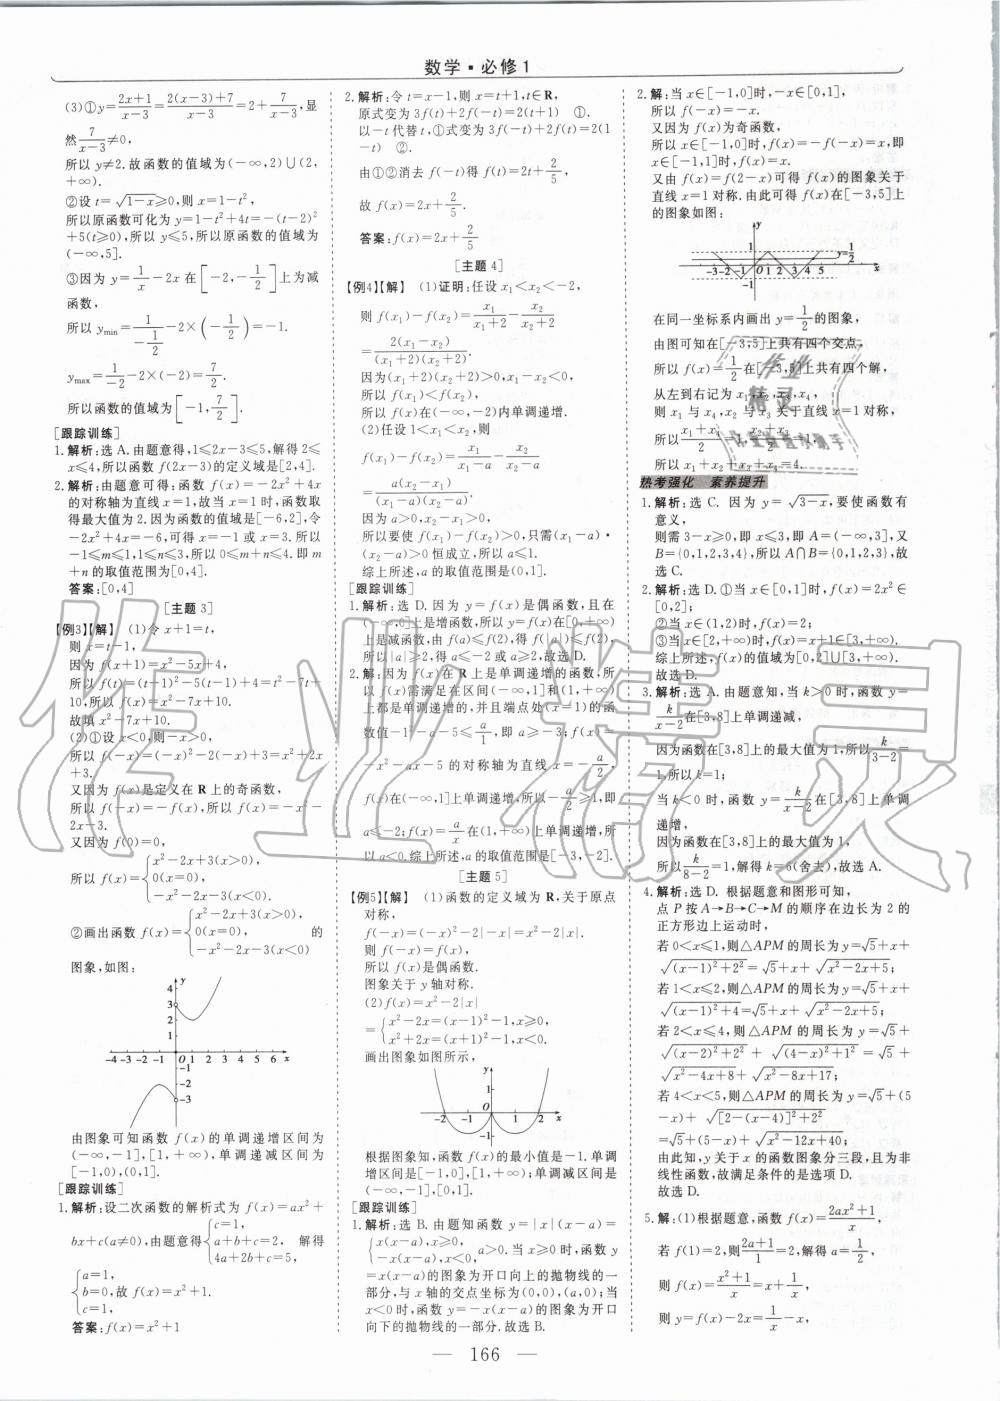 数学·必修1
(3)①y=(2x+1)/(x-3)=(2(x-3)+7)/(x-3)=2+7/(x-3),显
然7/(x-3)≠0,
所以y≠2.故函数的值域为(-∞,2)∪(2,
+∞).
②设t=√(1-x)≥0,则x=1-t²,
所以原函数可化为y=1-t²+4t=-(t-2)²
+5(t≥0),所以y≤5,所以原函数的值域为
(-∞,5].
③因为y=1/x-2x在[-2,-1/2]上为减
函数,
所以y_min=1/(-1/2)-2×(-1/2)=-1.
y_max=1/(-2)-2×(-2)=7/2.
所以函数的值域为[-1,7/2].
[跟踪训练]
1.解析:选A.由题意得,1≤2x-3≤5,解得2≤
x≤4,所以函数f(2x-3)的定义域是[2,4].
2.解析:由题意可得:函数f(x)=-2x²+4x
的对称轴为直线x=1,故当x=1时,函数取
得最大值为2.因为函数的值域是[-6,2],令
-2x²+4x=-6,可得x=-1或x=3.所以
-1≤m≤1,1≤n≤3,所以0≤m+n≤4.即m
+n的取值范围为[0,4].
答案:[0,4]
[主题3]
【例3】【解】 (1)令x+1=t,
则x=t-1,
因为f(x+1)=x²-5x+4,
所以f(t)=(t-1)²-5(t-1)+4=t²-7t+
10,所以f(x)=x²-7x+10.
故填x²-7x+10.
(2)①设x<0,则-x>0,
所以f(-x)=(-x)²-2(-x)+3=x²+2x
+3.
又因为f(x)是定义在R上的奇函数,
所以f(-x)=-f(x),所以f(x)=-x²-
2x-3.
又因为f(0)=0,
所以f(x)={x²-2x+3(x>0),
0(x=0),
-x²-2x-3(x<0).
②画出函数f(x)={x²-2x+3(x>0), 的
0(x=0),
-x²-2x-3(x<0)
图象,如图:
y
4
3
2
1
-4-3-2-1 O 1 2 3 4 5 6 x
-1
-2
-3
由图象可知函数f(x)的单调递增区间为
(-∞,-1],[1,+∞),单调递减区间为
[-1,0),(0,1].
[跟踪训练]
1.解析:设二次函数的解析式为f(x)=ax²+
bx+c(a≠0),由题意得{c=1, 解得
a+b+c=2,
4a+2b+c=5,
{a=1,
b=0,故f(x)=x²+1.
c=1,
答案:f(x)=x²+1
2.解析:令t=x-1,则x=t+1,t∈R,
原式变为3f(t)+2f(-t)=2(t+1) ①.
以-t代替t,①式变为3f(-t)+2f(t)=2(1
-t) ②.
由①②消去f(-t)得f(t)=2t+2/5,
故f(x)=2x+2/5.
答案:f(x)=2x+2/5
[主题4]
【例4】【解】 (1)证明:任设x₁<x₂<-2,
则f(x₁)-f(x₂)=x₁/(x₁+2)-x₂/(x₂+2)
=2(x₁-x₂)/((x₁+2)(x₂+2)).
因为(x₁+2)(x₂+2)>0,x₁-x₂<0,
所以f(x₁)<f(x₂),
所以f(x)在(-∞,-2)内单调递增.
(2)任设1<x₁<x₂,则
f(x₁)-f(x₂)=x₁/(x₁-a)-x₂/(x₂-a)
=a(x₂-x₁)/((x₁-a)(x₂-a)).
因为a>0,x₂-x₁>0,
所以要使f(x₁)-f(x₂)>0,只需(x₁-a)·
(x₂-a)>0恒成立,所以a≤1.
综上所述,a的取值范围为(0,1].
[跟踪训练]
1.解析:选D.因为y=f(x)是偶函数,且在
(-∞,0]上是增函数,所以y=f(x)在[0,+∞)
上是减函数,由f(a)≤f(2),得f(|a|)≤f(2),
所以|a|≥2,得a≤-2或a≥2,故选D.
2.解:因为f(x)在R上是单调递增的函数,所
以f(x)需满足在区间(-∞,1]和(1,+∞)
上都是单调递增的,并且端点处(x=1)的函
数值-1²-a-5≤a/1,即a≥-3;f(x)=
-x²-ax-5的对称轴为直线x=-a/2,
f(x)在(-∞,1]上单调递增,所以-a/2≥1,即
a≤-2;f(x)=a/x在(1,+∞)上单调递增,所
以a<0.综上所述,a的取值范围是[-3,-2].
[主题5]
【例5】【解】 (1)函数的定义域为R,关于原点
对称,
f(-x)=(-x)²-2|-x|=x²-2|x|.
则f(-x)=f(x),
所以f(x)是偶函数.
图象关于y轴对称.
(2)f(x)=x²-2|x|
={x²-2x=(x-1)²-1,x≥0,
x²+2x=(x+1)²-1,x<0.
画出图象如图所示,
y
1
-2 -1 O 1 2 x
-1
根据图象知,函数f(x)的最小值是-1.单调
增区间是[-1,0],[1,+∞);单调减区间是
(-∞,-1],[0,1].
[跟踪训练]
1.解析:选B.由题知函数y=|x|(x-a)=
{x(x-a),x≥0, a>0.当x≥0时,函数y
-x(x-a),x<0,
=x(x-a)的图象为开口向上的抛物线的一
部分,与x轴的交点坐标为(0,0),(a,0);当
x<0时,函数y=-x(x-a)的图象为开口
向下的抛物线的一部分.故选B.
2.解:当x∈[-1,0]时,-x∈[0,1],
所以f(-x)=-x.
又因为f(x)为奇函数,
所以x∈[-1,0]时,f(x)=-f(-x)=x,即
x∈[-1,1]时,f(x)=x.
又由f(x)=f(2-x)可得f(x)的图象关于
直线x=1对称.由此可得f(x)在[-3,5]上
的图象如图:
y
1
y=1/2
-3-2-1 O 1 2 3 4 5 x
-1
在同一坐标系内画出y=1/2的图象,
由图可知在[-3,5]上共有四个交点,
所以f(x)=1/2在[-3,5]上共有四个解,
从左到右记为x₁,x₂,x₃,x₄,
则x₁与x₄,x₂与x₃关于直线x=1对称,
所以(x₁+x₄)/2=1,(x₂+x₃)/2=1.
所以x₁+x₂+x₃+x₄=4.
热考强化 素养提升
1.解析:选C. 因为y=√(3-x),要使函数有
意义,
则需3-x≥0,即x≤3,即A=(-∞,3],又
B={0,1,2,3,4},所以A∩B={0,1,2,3},故
选C.
2.解析:选D.①当x∈[0,1]时,f(x)=2x²∈
[0,2];
②当x∈(1,2)时,f(x)=2;
③当x∈[2,+∞)时,f(x)=x+1∈[3,+∞).
综上所述,f(x)的值域为[0,2]∪[3,+∞).
故选D.
3.解析:选A.由题意知,当k>0时,函数y=
k/(x-2)在[3,8]上单调递减,
因为函数在[3,8]上的最大值为1,所以k/(3-2)=
1,所以k=1;
当k<0时,函数y=k/(x-2)在[3,8]上单调
递增,
因为函数在[3,8]上的最大值为1,
所以k/(8-2)=1,解得k=6(舍去),故选A.
4.解析:选D. 根据题意和图形可知,
点P按A→B→C→M的顺序在边长为2的
正方形边上运动时,
若0<x≤1,则△APM的周长为y=√5+x+
√((x-1)²+2²)=√5+x+√(x²-2x+5);
若1<x≤2,则△APM的周长为y=√5+x+
√((x-1)²+4)=√5+x+√(x²-2x+5);
若2<x≤4,则△APM的周长为y=√5+
√((x-2)²+2²)+√((4-x)²+1²)=√5+
√(x²-4x+8)+√(x²-8x+17);
若4<x<5,则△APM的周长为y=√5+(5
-x)+√([2-(x-4)]²+2²)
=√5+(5-x)+√(x²-12x+40);
由此知,y关于x的函数图象分三段,且为非
线性函数,故满足条件的是选项D.
故选D.
5.解:(1)根据题意,函数f(x)=(2ax²+1)/x,
若f(1)=2,则(2a+1)/1=2,解得a=1/2,
则f(x)=(x²+1)/x=x+1/x,
则y=f(x)-2x=1/x-x,
— 166 —
作业精灵